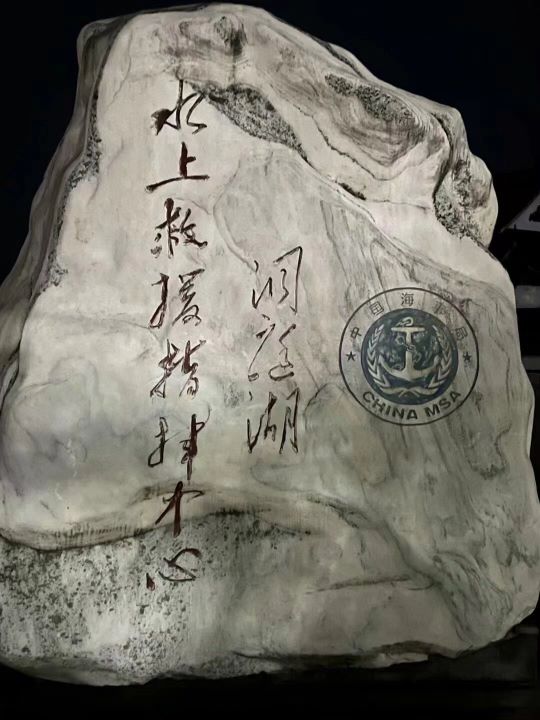 中国海事局
CHINA MSA
洞庭湖
水上救援指挥中心